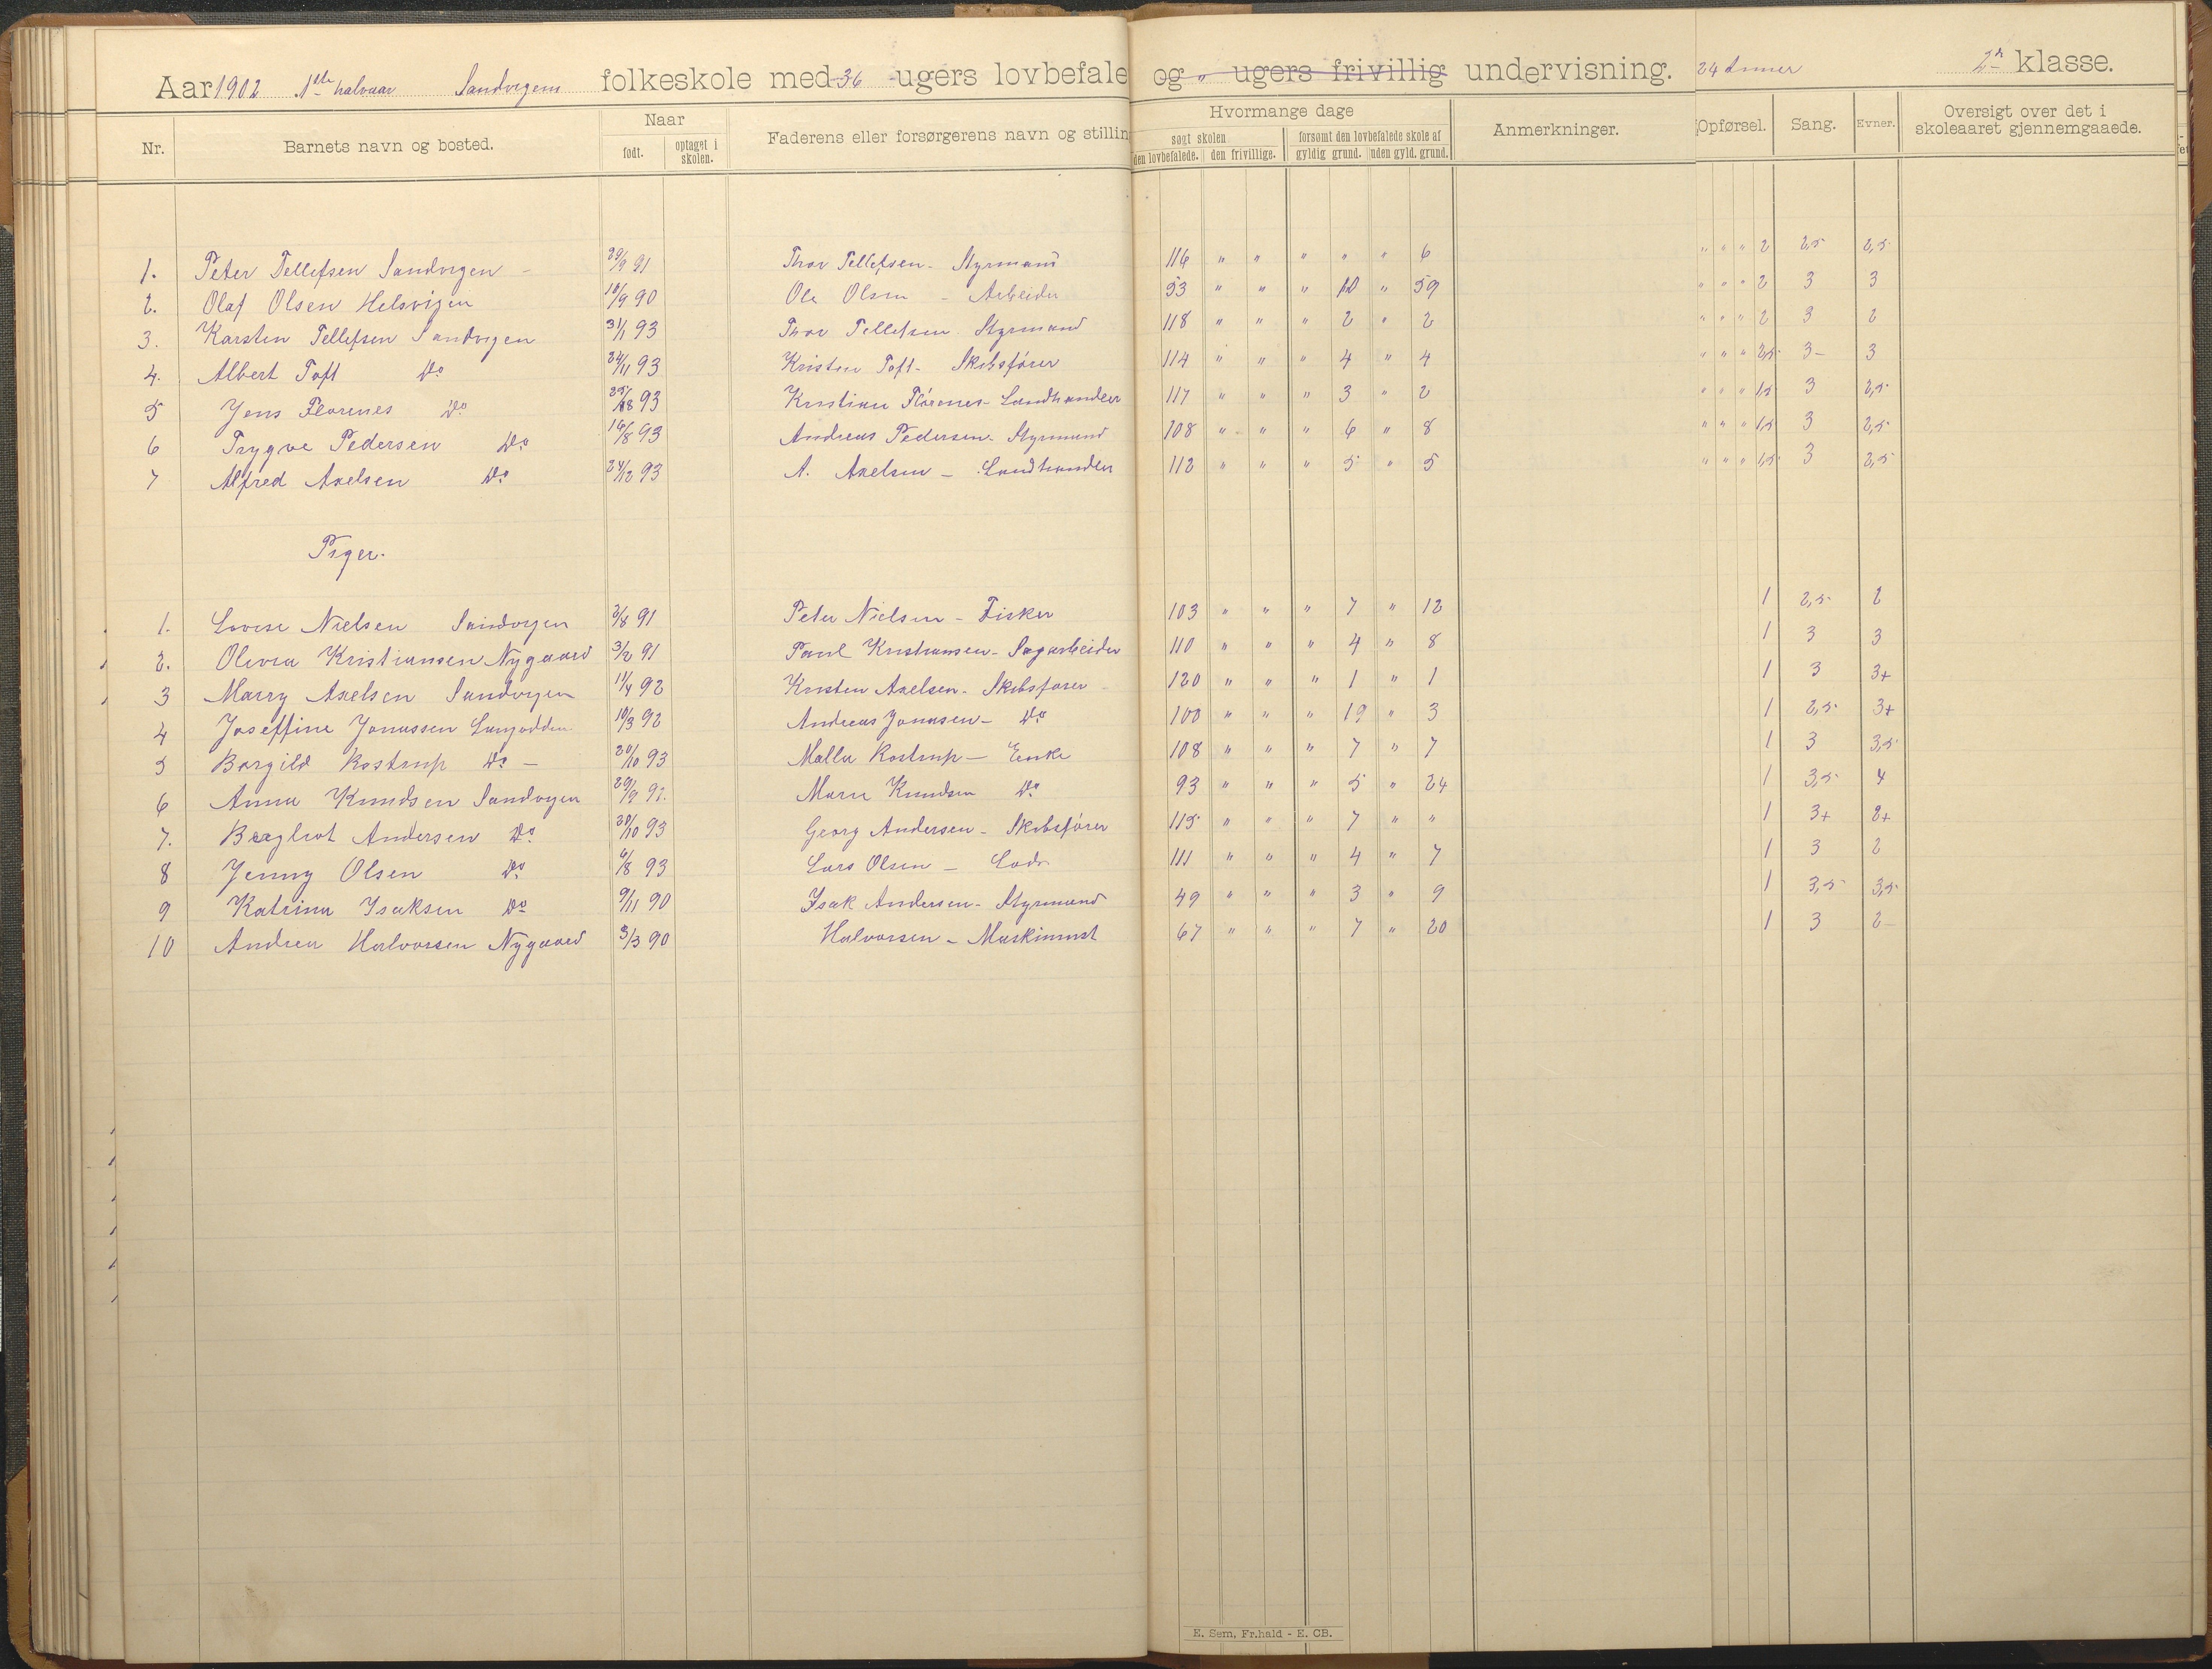 Aar 1902 1ste halvaar Sandvigens folkeskole med 36 ugers lovbefale og " ugers frivillig undervisning. 24 timer 2n klasse.
Nr. Barnets navn og bosted. Naar født. optaget i skolen. Faderens eller forsørgerens navn og stillin Hvormange dage søgt skolen den lovbefalede. den frivillige. forsømt den lovbefalede skole af gyldig grund. uden gyld. grund. Anmerkninger. Opførsel. Sang. Evner. Oversigt over det i skoleaaret gjennemgaaede.
1. Peter Tellefsen Sandvigen - 29/9 91 Thor Tellefsen - Styrmand 116 " " " " " 6 " " " 2 2,5 2,5
2. Olaf Olsen Helsvigen 18/9 90 Ole Olsen - Arbeider 53 " " " 10 " 59 " " " 2 3 3
3. Karsten Tellefsen Sandvigen 31/1 93 Thor Tellefsen Styrmand 118 " " " 2 " 2 " " " 2 3 2
4. Albert Toft Do 24/11 93 Kristen Toft - Skibsfører 114 " " " 4 " 4 " " " 2,5 3- 3
5 Jens Florenes Do 25/8 93 Kristian Florenes - Landhandler 117 " " " 3 " 2 " " " 1,5 3 2,5
6 Trygve Pedersen Do 16/8 93 Andreas Pedersen - Styrmand 108 " " " 6 " 8 " " " 1,5 3 2,5
7 Alfred Axelsen Do 24/12 93 A. Axelsen - Landhandler 112 " " " 5 " 5 " " " 1,5 3 2,5
Piger.
1. Lovise Nielsen Sandvigen 2/8 91 Peter Nielsen - Fisker 103 " " " 7 " 12 1 2,5 2
2. Olivia Kristiansen Nygaard 3/2 91 Paul Kristiansen - Sagarbeider 110 " " " 4 " 8 1 3 3
3 Marry Axelsen Sandvigen 11/4 92 Kristen Axelsen - Skibsfører - 120 " " " 1 " 1 1 3 3+
4 Joseffine Jonassen Langodden 10/3 92 Andreas Jonasen - Do 100 " " " 19 " 3 1 2,5 3+
5 Borgild Rostrup Do - 20/10 93 Malla Rostrup - Enke 108 " " " 7 " 7 1 3 3,5
6 Anna Knudsen Sandvigen 29/9 92. Marie Knudsen Do 93 " " " 5 " 24 1 3,5 4
7. Bergliot Andersen Do 30/10 93 Georg Andersen - Skibsfører 115 " " " 7 " " 1 3+ 2+
8 Jenny Olsen Do 6/8 93 Lars Olsen - Lods 111 " " " 4 " 7 1 3 2
9 Katrina Isaksen Do 9/11 90 Isak Andersen - Styrmand 49 " " " 3 " 9 1 3,5 3,5
10 Andrea Halvorsen Nygaard 3/3 90 Halvorsen - Maskinist 67 " " " 7 " 20 1 3 2-
E. Sem, Fr.hald - E. CB.